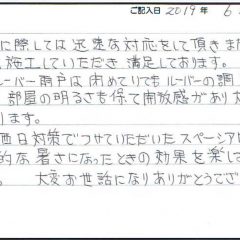 ご記入日 2019年 6.
に際しては迅速な対応をして頂きま
施工していただき満足しております。
ルーバー雨戸は閉めていてもルーバーの調
部屋の明るさも保て開放感があり大
ります。
西日対策でつけていただいたスペーシア
的な暑さになったときの効果を楽し
。 大変お世話になりありがとうござ